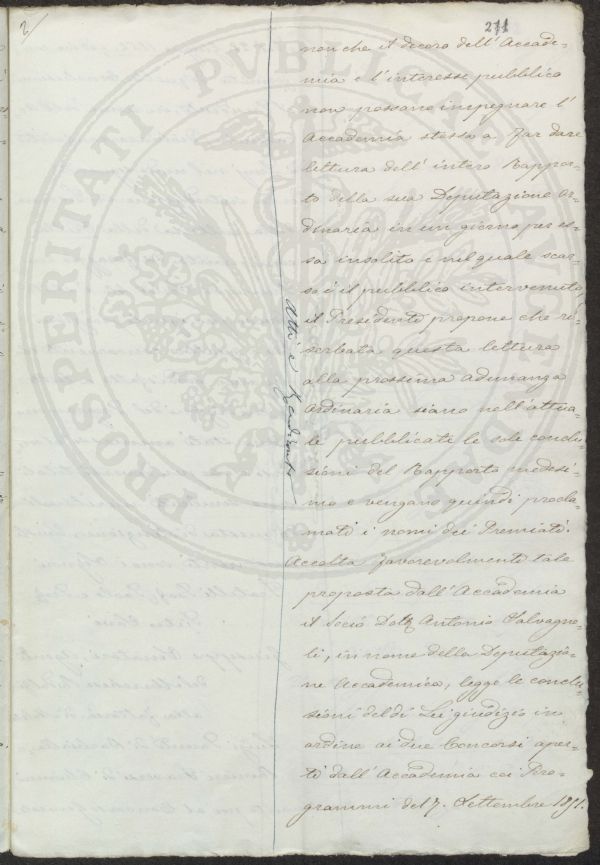 2/
211
non che il decoro dell'Accade-
mia e l'interesse pubblico
non possano impegnare l'
Accademia stessa a far dare
lettura dell'intero Rappor-
to della sua Deputazione or-
dinaria in un giorno per es-
sa insolito e nel quale scar-
so è il pubblico intervenuto,
il Presidente propone che ri-
serbata questa lettura
alla prossima adunanza
ordinaria siano nell'attua-
le pubblicate le sole conclu-
sioni del Rapporto medesi-
mo e vengano quindi procla-
mati i nomi dei Premiati.
Accolta favorevolmente tale
proposta dall'Accademia
il Socio Dott. Antonio Salvagno-
li, in nome della Deputazio-
ne Accademica, legge le conclu-
sioni del di Lei giudizio in
ordine ai due Concorsi aper-
ti dall'Accademia coi Pro-
grammi del 7. Settembre 1851.
Atti e Rendiconti
PROSPERITATI PUBLICAE AUGENDAE